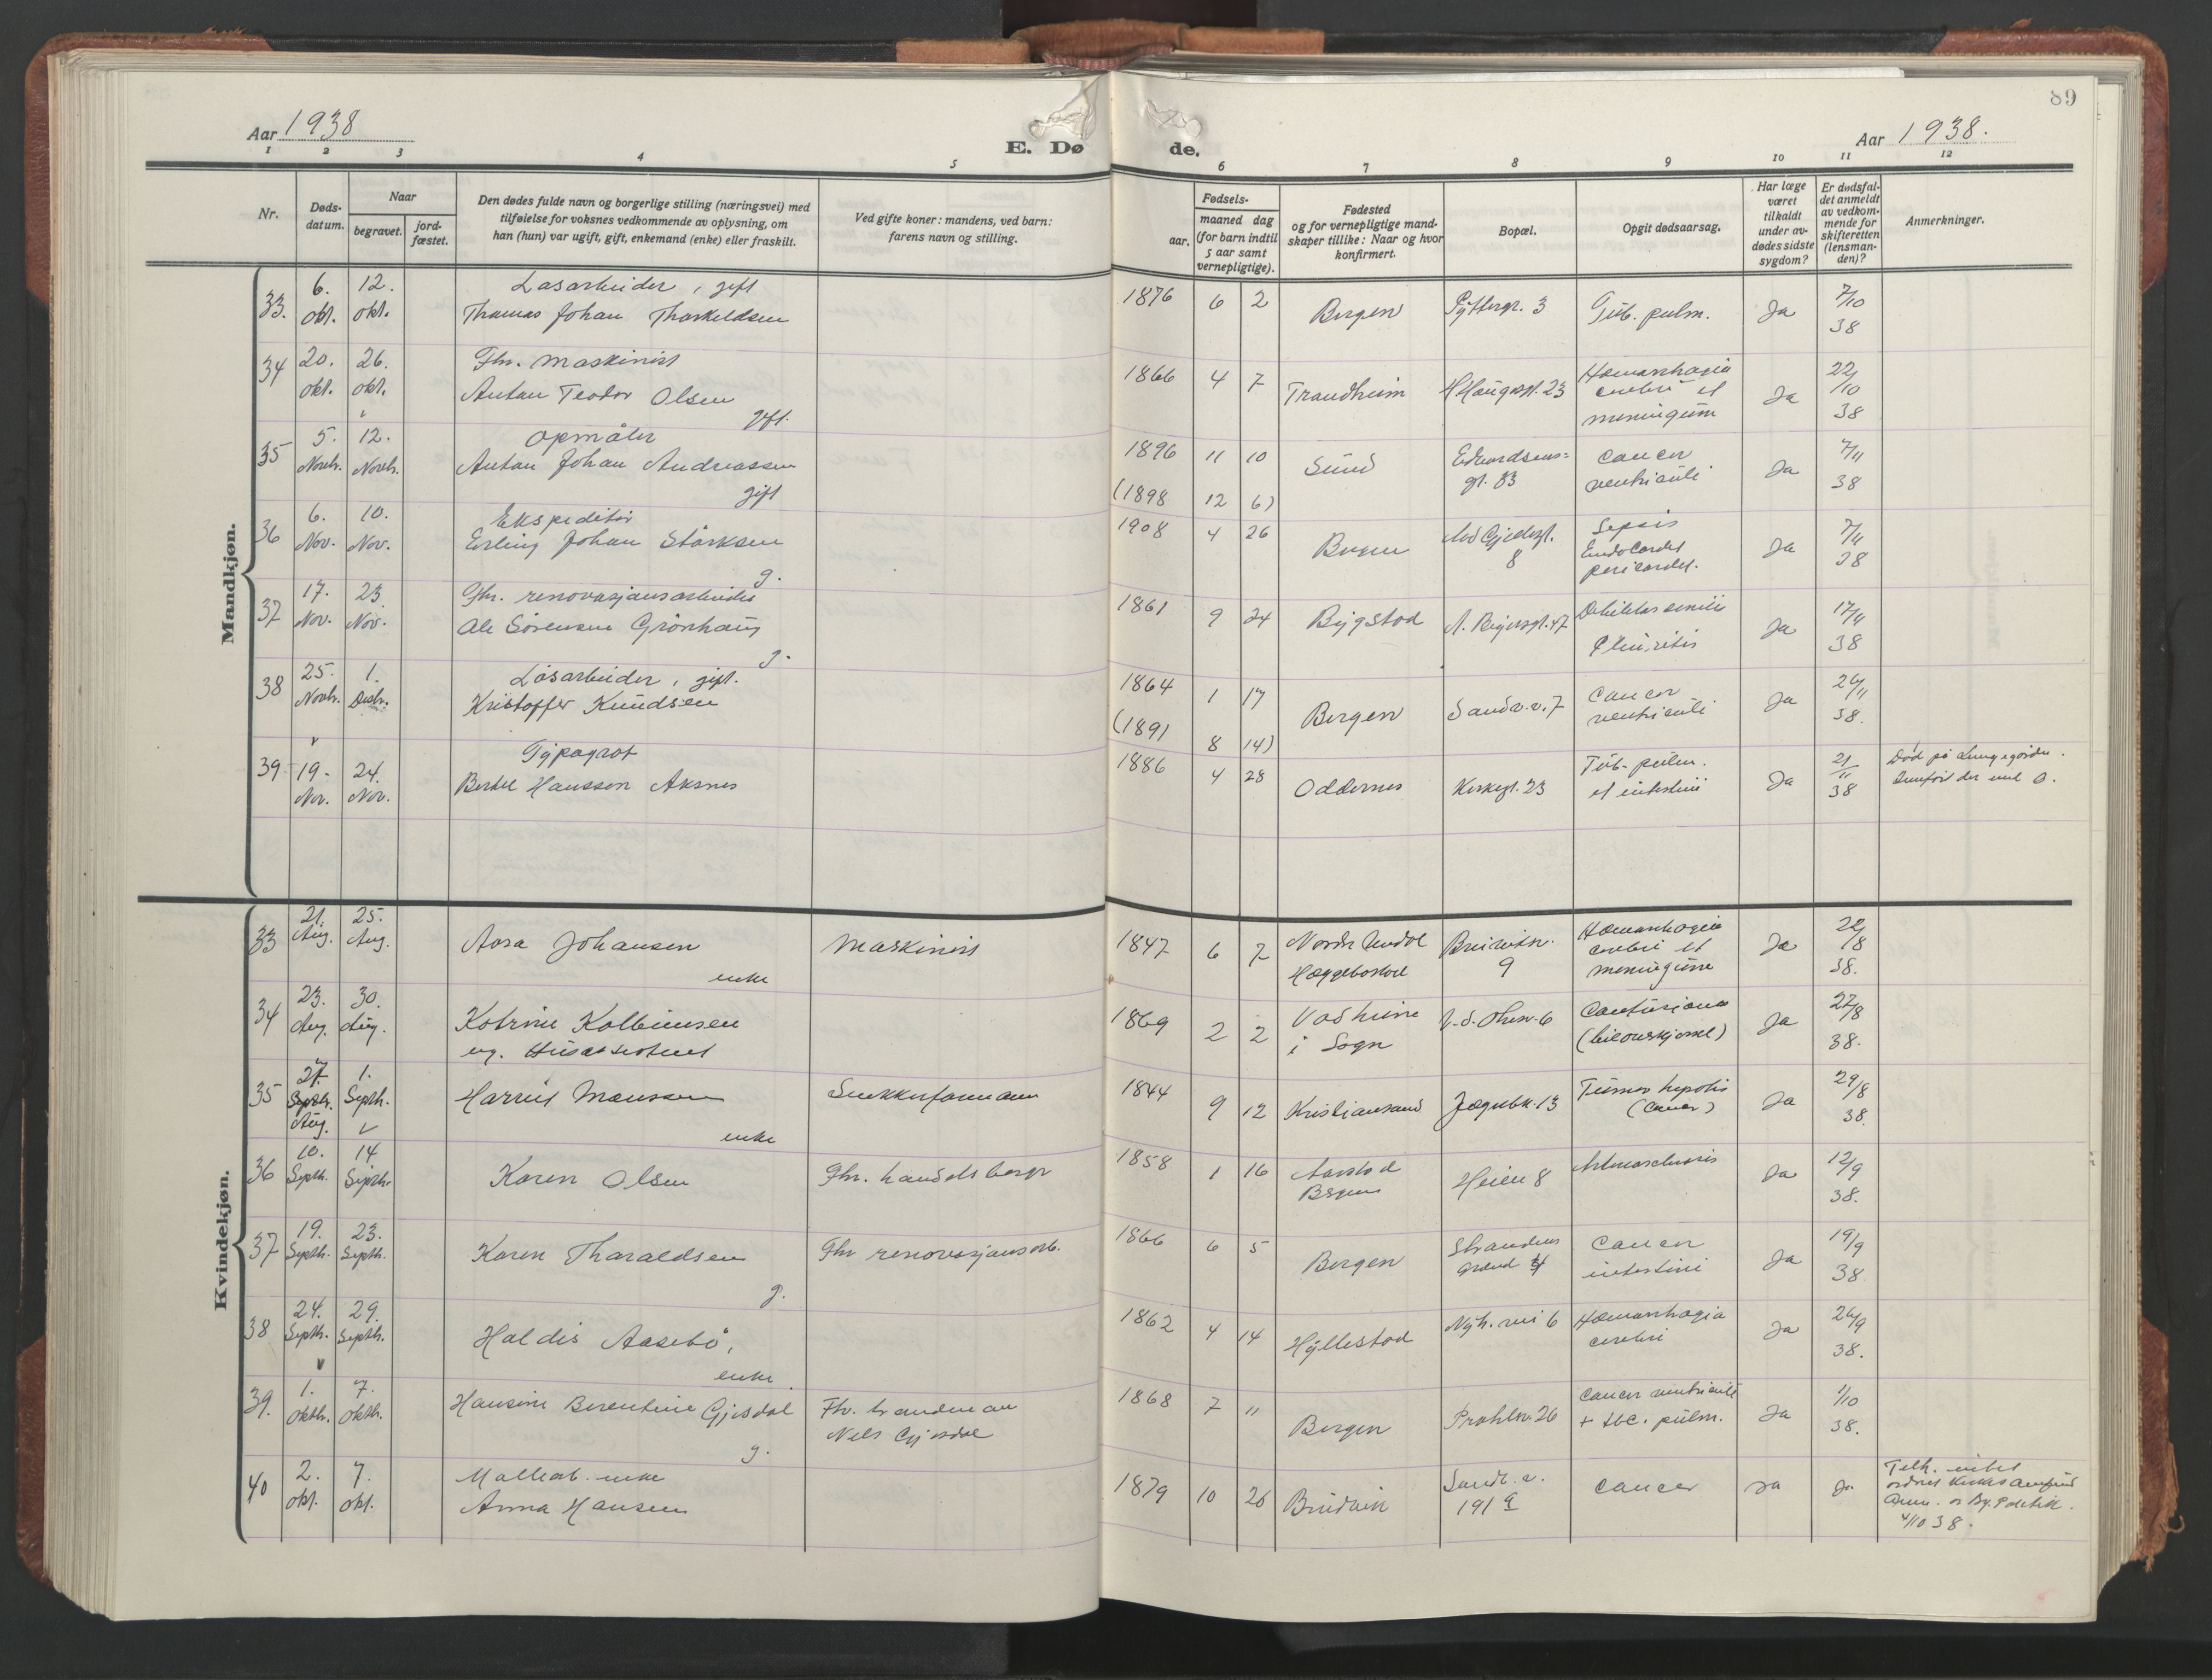 89
Aar 1938
E. Dø
de.
Aar 1938.
1 2 3 4 5 6 7 8 9 10 11 12
Nr.
Døds-
datum.
Naar
begravet.
jord-
fæstet.
Den dødes fulde navn og borgerlige stilling (næringsvei) med
tilføielse for voksnes vedkommende av oplysning, om
han (hun) var ugift, gift, enkemand (enke) eller fraskilt.
Ved gifte koner: mandens, ved barn:
farens navn og stilling.
Fødsels-
aar.
maaned dag
(for barn indtil
5 aar samt
vernepligtige).
Fødested
og for vernepligtige mand-
skaper tillike: Naar og hvor
konfirmert.
Bopæl.
Opgit dødsaarsag.
Har læge
været
tilkaldt
under av-
dødes sidste
sygdom?
Er dødsfal-
det anmeldt
av vedkom-
mende for
skifteretten
(lensman-
den)?
Anmerkninger.
Mandkjøn.
33. 6. okt. 12. okt. Løsarbeider, gift
Thomas Johan Thorkeldsen
1876 6 2 Bergen 3 Tub. pulm. Ja 7/10 38
34 20. okt. 26. okt. Fhv. maskinist
Anton Teodor Olsen
gift.
1866 4 7 Trondheim H Haugesgt. 23 Hæmorrhagia
cerebri et
meningum
Ja 22/10 38
35 5. Novbr. 12. Novbr. Opmåler
Anton Johan Andreassen
gift
1896 11 10
(1898 12 6)
Sund Edvardsens=
gt. 33
cancer
ventriculi
Ja 7/11 38
36 6. Nov. 10. Nov. Ekspeditør
Erling Johan Størksen
g.
1908 4 26 Bergen 8 Sepsis
Endocardit
pericardit.
Ja 7/11 38
37 17. Nov. 23 Nov. Fhv. renovasjonsarbeider
Ole Sørensen Grønhaug
g.
1861 9 24 Bygstad 47 Debilitas senilis
Pleuritis
Ja 17/11 38
38 25. Novbr. 1. Desbr. Løsarbeider, gift.
Kristoffer Knudsen
1864 1 17
(1891 8 14)
Bergen Sandv.v. 7 cancer
ventriculi
Ja 26/11 38.
39 19. Nov. 24. Nov. Typograf
Bertel Hansson Aksnes
1886 4 28 Oddernes Kirkegt. 23 Tub. pulm.
et intestini
Ja 21/11 38 Død på
Kvindekjøn.
33 21. Aug. 25. Aug. Aasa Johansen
enke
Maskinist
1847 6 7
Hæggebostad
9
Hæmorrhagia
cerebri et
meninguum
Ja 22/8 38.
34 23. Aug. 30. Aug. Katrine Kolbeinsen
ug. Husassistent
1869 2 2
i Sogn
6
Ja 27/8 38.
35 27. Septbr. Aug. 1. Septbr. Harriet Monssen
enke
Snekkerformann
1844 9 12 Kristiansand 13 Tumor hepatis
(cancer)
Ja 29/8 38.
36 10. Septbr. 14 Septbr. Karen Olsen Fhv. handelsborger
1858 1 16 Aarstad
Bergen
Heien 8 Ja 12/9 38.
37 19. Septbr. 23. Septbr. Karen Tharaldsen
g.
Fhv renovasjonsarb.
1866 6 5 Bergen cancer
intestini
Ja 19/9 38
38 24. Septbr. 29. Septbr. Haldis Aasebø,
enke.
1862 4 14 Hyllestad Nyh. vei 6 Hæmorrhagia
cerebri
Ja 26/9 38.
39. 1. Oktbr. 7. Oktbr. Hansine Berentine Gjesdal
g.
Fhv. brandmann
Nils Gjesdal
1868 7 11 Bergen 26 cancer ventriculi
+ tbc. pulm.
Ja 1/10 38.
40 2. okt. 7. okt. enke
Anna Hansen
1879 10 26 191 a cancer ja Ja
4/10 38.